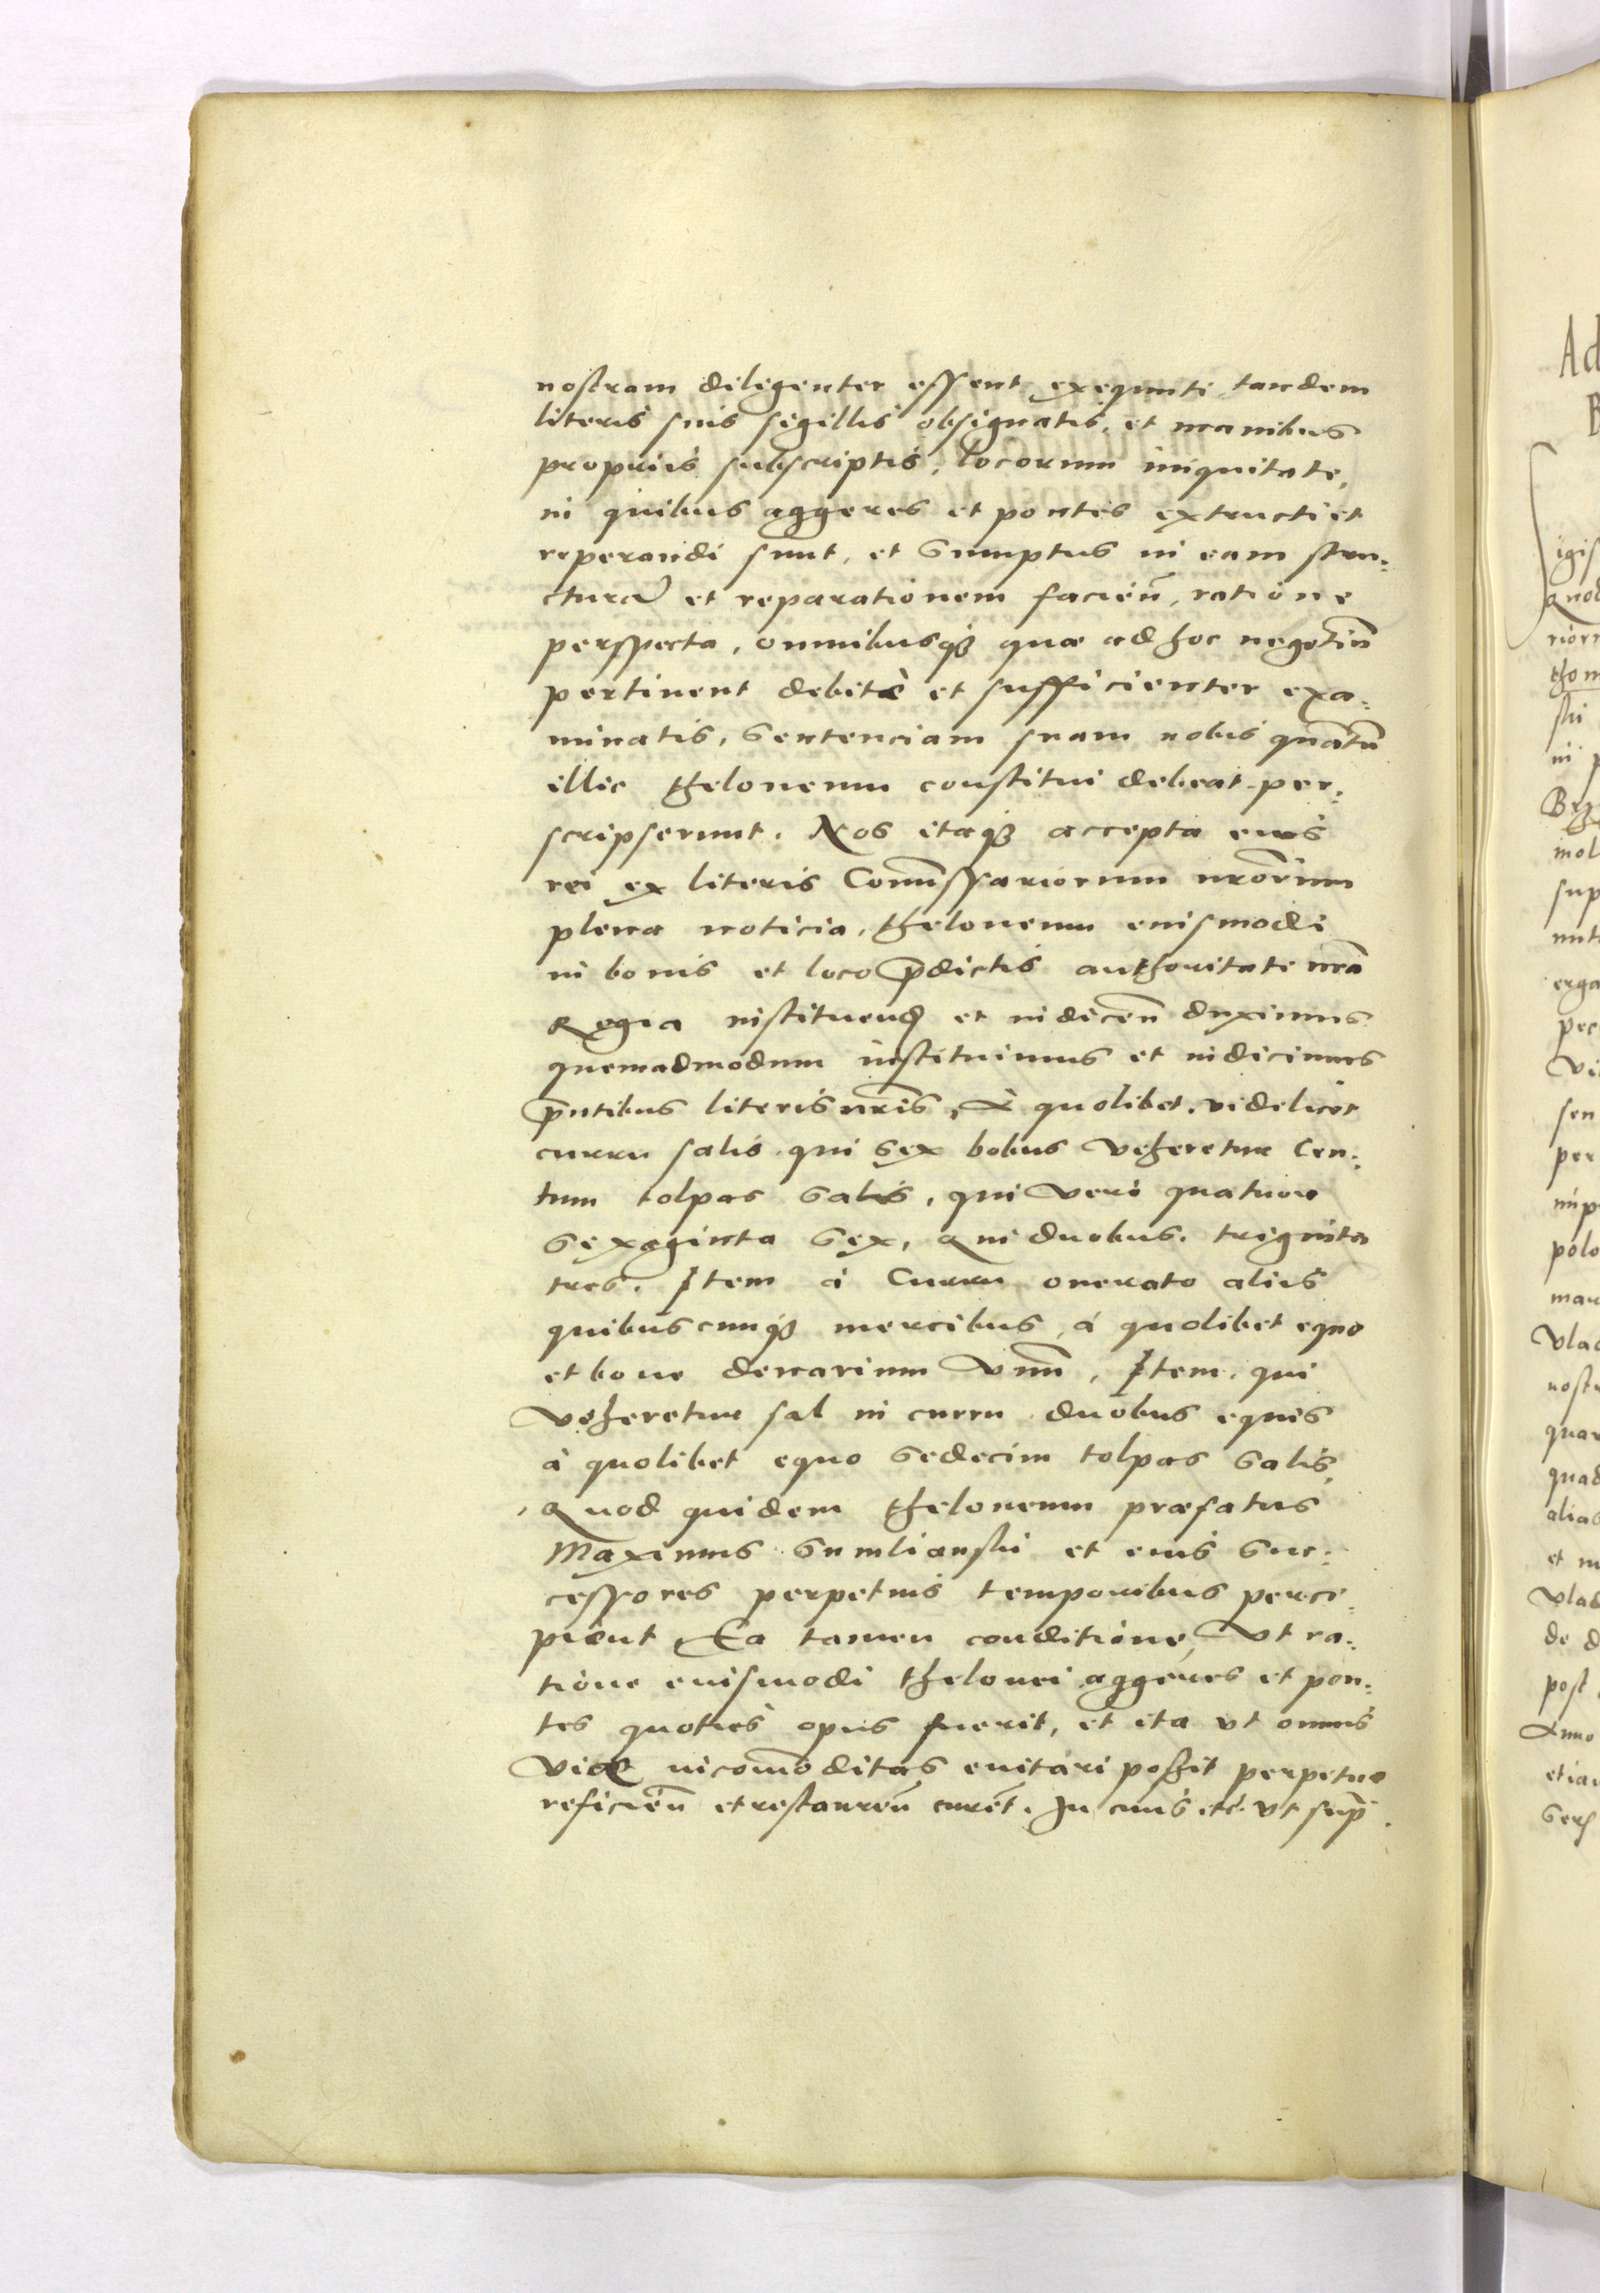 nostram diligenter essent exequuti tandem
literis suis sigillis obsignatis, et manibus
propriis subscriptis, locorum iniquitate,
in quibus aggeres et pontes extructi et
reperandi sunt, et sumptus in eam stru:
cturã et reparationem facień, ratione
perspecta, omnibusqꝫ quæ ad hoc negotiũ
pertinent debitè et sufficienter exa:
minatis, sentenciam suam nobis quãtũ
illic theloneum constitui debeat per:
scripserunt. Nos itaqꝫ accepta eius
rei ex literis Com̃issariorum nr̃orum
plena noticia, theloneum euismodi
in bonis et loco p̃dictis authoritate nr̃a
Regia instituend et indiceñ duximus
quemadmodum instituimus et indicimus
p̃ntibus literis nr̃is, A quolibet videlicet
curru salis qui sex bobus veheretur Cen:
tum tolpas salis, qui vero quatuor
sexaginta sex, qui duobus triginta
tres. Item à Curru onerato aliis
quibuscunqꝫ mercibus, à quolibet equo
et bove denarium vnũ, Item, qui
veheretur sal in curru duobus equis
à quolibet equo sedecim tolpas salis,
Quod quidem theloneum præfatus
Maximus et eius suc:
cessores perpetuis temporibus perci:
pient, Ea tamen conditione, Vt ra:
tione euismodi thelonei aggeres et pon:
tes quoties opus fuerit, et ita vt omnis
viæ incom̃oditas euitari possit perpetuo
reficień et restaureñ curẽt. In cuius etc̃ vt sup̃.
Ad
B
igis
Quod
rior
thom
ski
in p
Brz
mol
sup
nut
erga
pec
vi
sen
per
imp
polo
mar
vlad
nostr
quar
quad
alias
et in
vlad
de d
post
Anno
etiam
sers